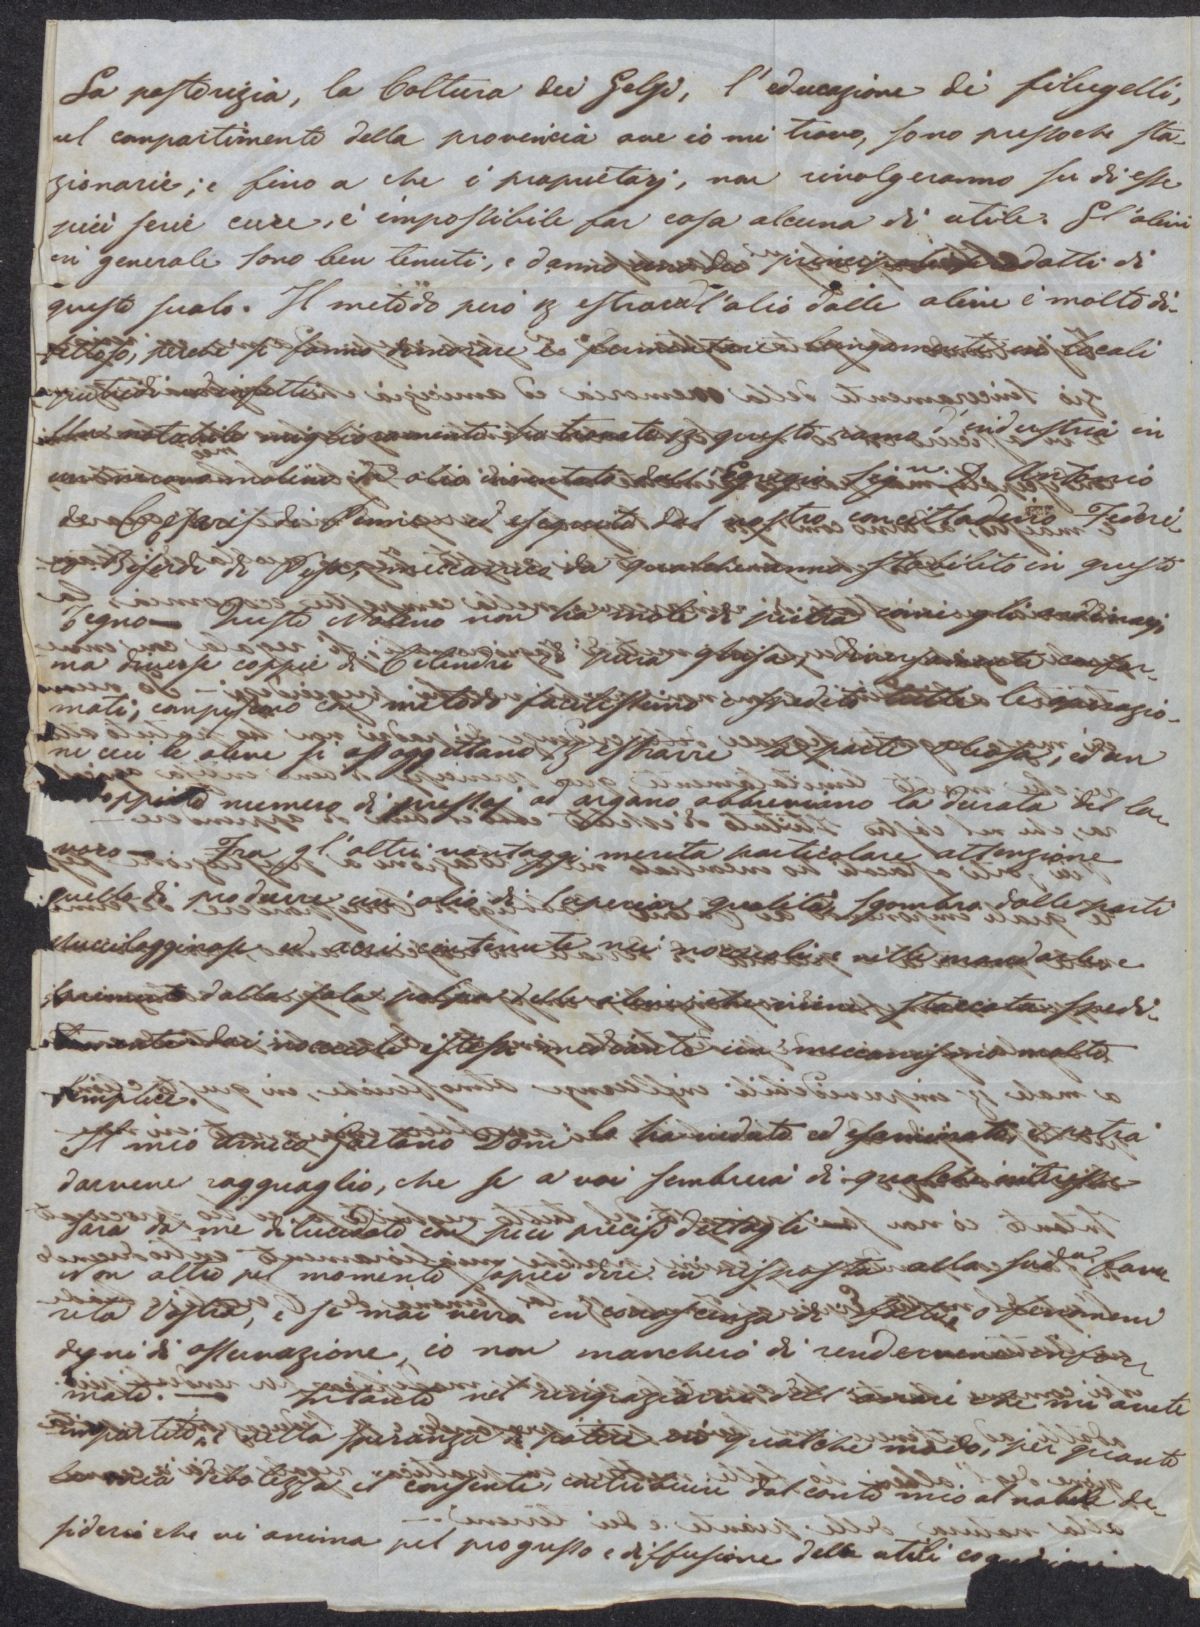 La pastorizia, la Coltura dei Gelsi, l'educazione di filugelli,
nel compartimento della provincia ove io mi trovo, sono pressoche sta-
zionarie; e fino a che i proprietarj, non rivolgeranno su di esse
più serie cure, è impossibile far cosa alcuna di utile. Gl'ulivi
in generale sono ben tenuti, e danno uno dei principali prodotti di
questo suolo. Il metodo però p estrarre l'olio dalle olive è molto di-
fettoso, perchè si fanno dimorare e fermentare lungamente in locali
putridi ed infetti.
Un notabile miglioramento ha trovato p questo ramo d'industria in
un nuovo molino da olio inventato dall'Egregio Sigr. D. Antonio
de Cesaris di Penne ed eseguito dal nostro concittadino Federi-
co Biferdi di Pisa, meccanico da qualche anno stabilito in questo
Regno — Questo Molino non ha mole di pietra come gli ordinarj,
ma diverse coppie di Cilindri in pura ghisa, diversamente confor-
mati, compiscono con metodo facilissimo e spedito tutte le operazio-
ni cui le olive si assoggettano p estrarre la parte oleosa, ed un
doppiato numero di pressoj ad argano abbreviano la durata del la-
voro — Fra gl'altri vantaggi merita particolare attenzione
quello di produrre un'olio di superior qualità, sgombro dalle parti
mucilagginose ed acri contenute nei noccioli e nelle mandorle e
proveniente dalla sola polpa delle olive che viene staccata spedi-
tamente dai noccioli istessi mediante un meccanismo molto
semplice.
Il mio amico Gaetano Doni lo ha veduto ed esaminato, e potrà
darvene ragguaglio, che se a voi sembrerà di qualche interesse
sarà da me dilucidato con più precisi dettagli —
Non altro pel momento saprei dire in risposta alla sudta. favo-
rita Vostra, e se mai verrà in conoscenza di fatti, o fenomeni
degni di osservazione, io non mancherò di rendervene infor-
mato. — Intanto nel ringraziarvi dell'onore che mi avete
impartito, e nella speranza di potere in qualche modo, per quanto
la mia debolezza il consente, contribuire dal conto mio al nobile de-
siderio che vi anima pel progresso e diffusione delle utili cognizioni